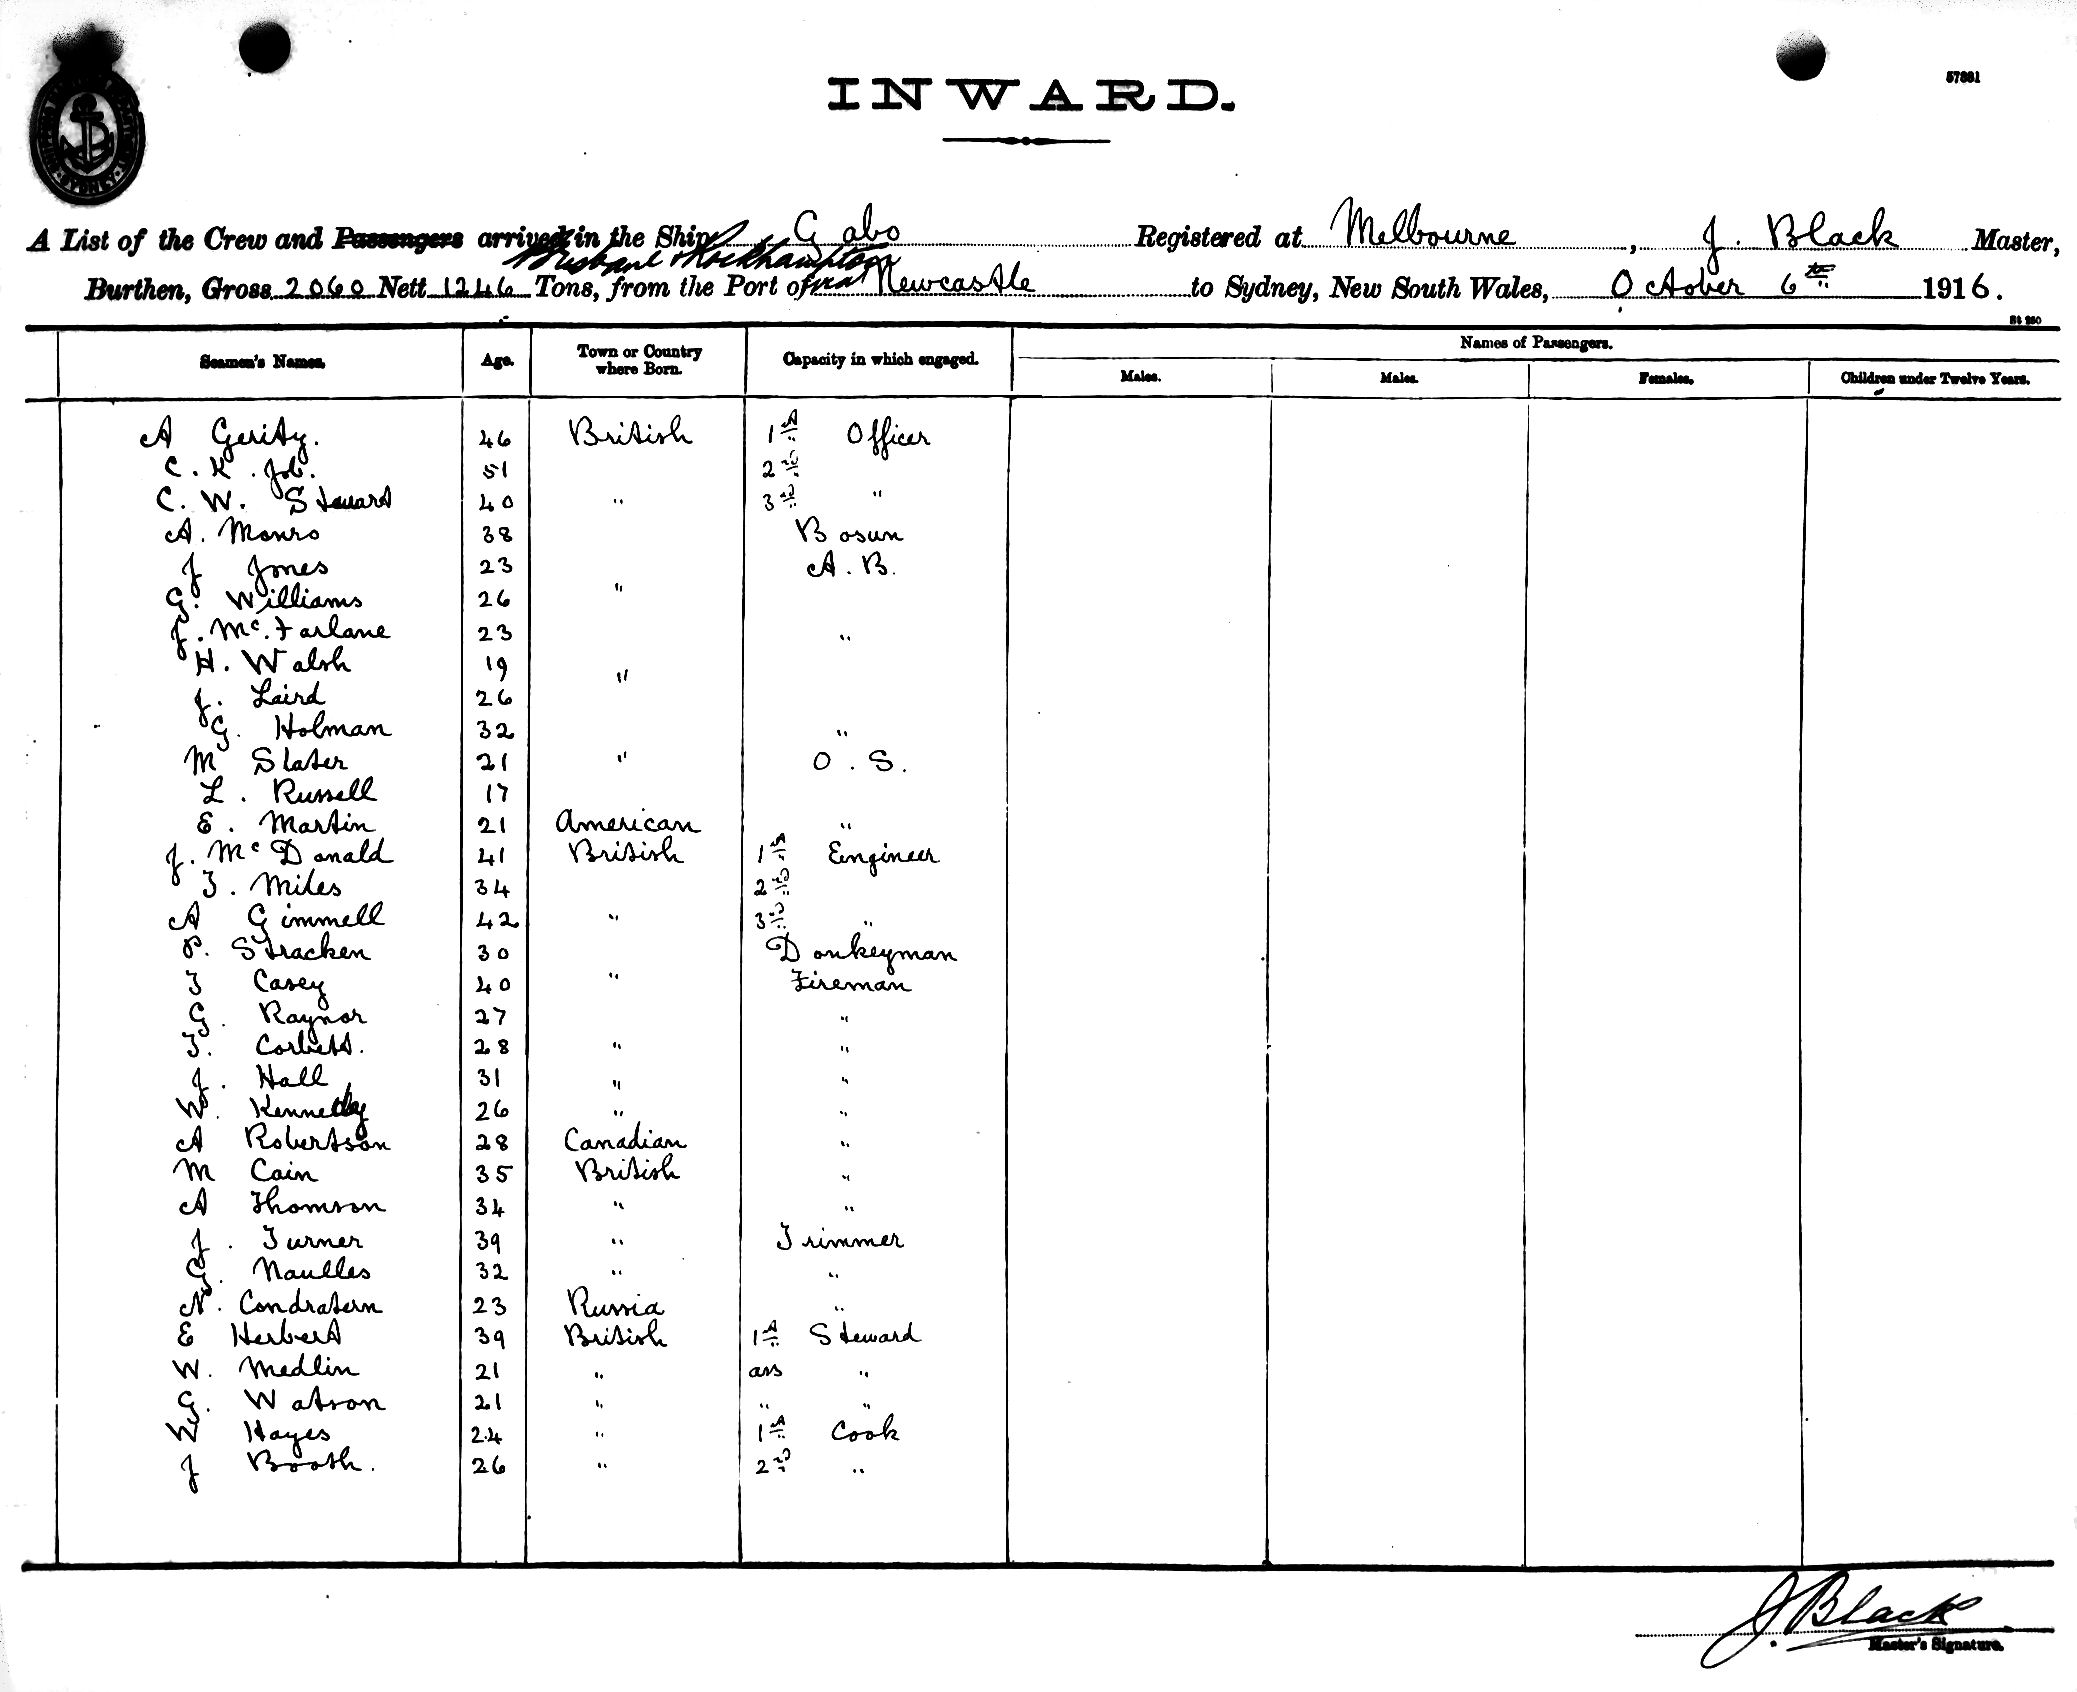 57381
INWARD.
A List of the Crew and Passengers arrived in the Ship Gabo Registered at Melbourne, J. Black Master,
Brisbane & Rockhampton
Burthen, Gross 2060 Nett 1246 Tons, from the Port of via Newcastle to Sydney, New South Wales, October 6th 1916.
Seamen's Names. Age. Town or Country where Born. Capacity in which engaged. Names of Passengers.
Males. Males. Females. Children under Twelve Years.
A Gerity. 46 British 1st Officer
C. K. Job. 51 2nd
C. W. Stewart 40 " 3rd "
A. Monro 38 Bosun
J Jones 23 A. B.
G. Williams 26 "
J. McFarlane 23 "
H. Walsh 19
J. Laird 26 "
G. Holman 32 "
M Slater 21 " O. S.
L. Russell 17
E. Martin 21 American "
J. McDonald 41 British 1st Engineer
T. Miles 34 2nd
A Gimmell 42 " 3rd "
P. Stracken 30 Donkeyman
T Casey 40 " Fireman
G. Raynor 27 "
T. Corbett. 28 " "
J. Hall 31 " "
W. Kennedy 26 " "
A Robertson 28 Canadian "
M Cain 35 British "
A Thomson 34 " "
J. Turner 39 " Trimmer
G. Naulles 32 " "
N. Condratern 23 Russia "
E Herbert 39 British 1st Steward
W. Medlin 21 " ass "
G. Watson 21 " " "
W Hayes 24 " 1st Cook
J Booth. 26 " 2nd "
J. Black
Master's Signature.